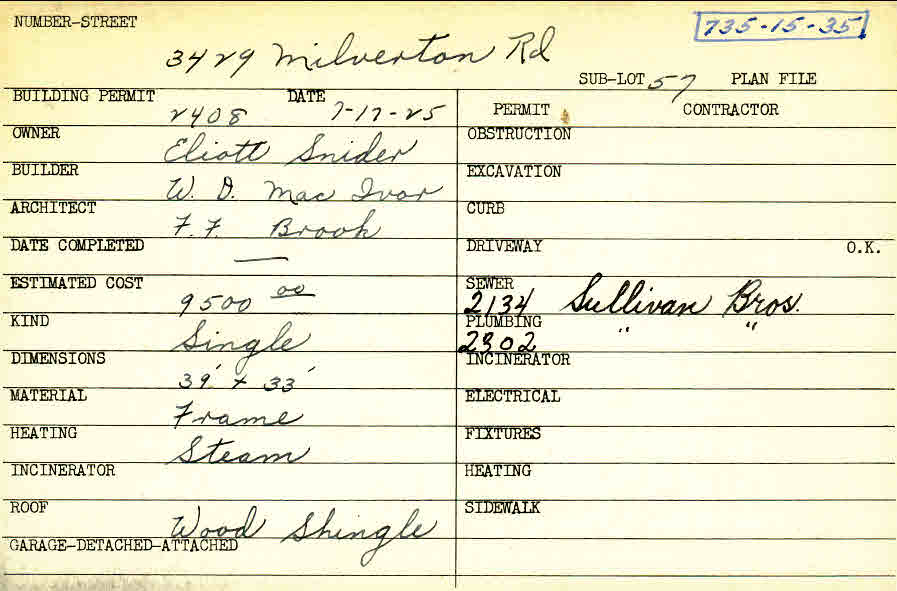 NUMBER-STREET 735-15-35
3429 Milverton Rd
SUB-LOT 57 PLAN FILE
BUILDING PERMIT DATE
2408 7-17-25
PERMIT CONTRACTOR
OWNER
Eliott Snider
BUILDER
W. D. Mac Ivor
ARCHITECT
F. F. Brook
DATE COMPLETED
—
ESTIMATED COST
9500 00
KIND
Single
DIMENSIONS
39' x 33'
MATERIAL
Frame
HEATING
Steam
INCINERATOR
ROOF
Wood Shingle
GARAGE-DETACHED-ATTACHED
OBSTRUCTION
EXCAVATION
CURB
DRIVEWAY O.K.
SEWER
2134 Sullivan Bros.
PLUMBING
2302 " "
INCINERATOR
ELECTRICAL
FIXTURES
HEATING
SIDEWALK